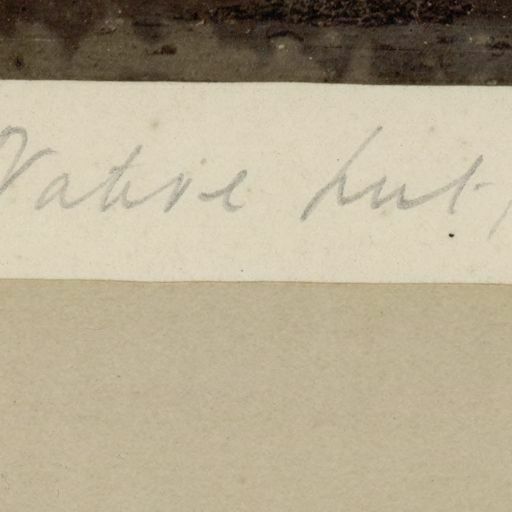 Native hut,